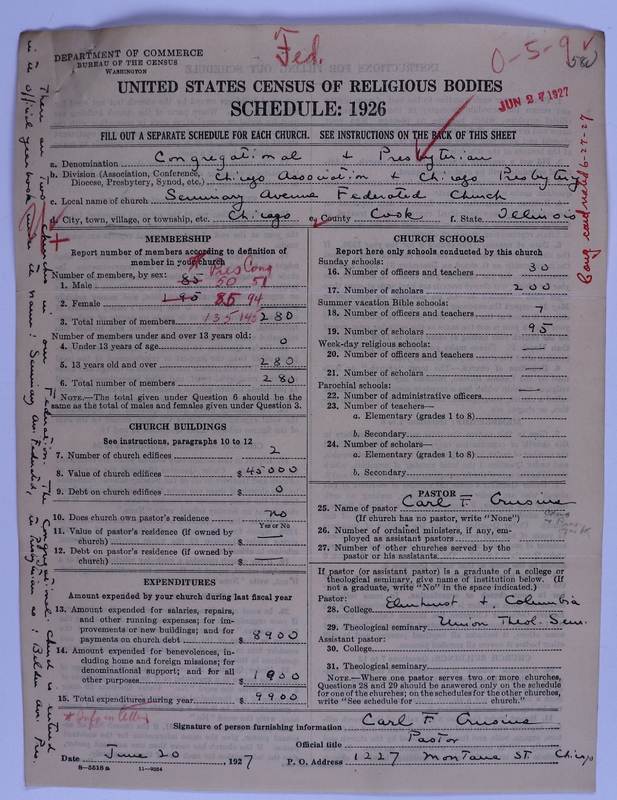 Fed.
0-5-9
580
DEPARTMENT OF COMMERCE
BUREAU OF THE CENSUS
WASHINGTON
UNITED STATES CENSUS OF RELIGIOUS BODIES
SCHEDULE: 1926
JUN 27 1927
FILL OUT A SEPARATE SCHEDULE FOR EACH CHURCH. SEE INSTRUCTIONS ON THE BACK OF THIS SHEET
a. Denomination Congregational + Presbyterian
b. Division (Association, Conference, Diocese, Presbytery, Synod, etc.) Chicago Association + Chicago Presbytery
c. Local name of church Seminary Avenue Federated Church
d. City, town, village, or township, etc. Chicago e. County Cook f. State Illinois
MEMBERSHIP
Report number of members according to definition of
member in your church
Number of members, by sex: Pres Cong
1. Male 85 50 51
2. Female 195 85 94
3. Total number of members 135 145 280
Number of members under and over 13 years old:
4. Under 13 years of age 0
5. 13 years old and over 280
6. Total number of members 280
NOTE.—The total given under Question 6 should be the
same as the total of males and females given under Question 3.
CHURCH BUILDINGS
See instructions, paragraphs 10 to 12
7. Number of church edifices 2
8. Value of church edifices $ 45000
9. Debt on church edifices $ 0
10. Does church own pastor's residence no
Yes or No
11. Value of pastor's residence (if owned by
church) $ —
12. Debt on pastor's residence (if owned by
church) $ —
EXPENDITURES
Amount expended by your church during last fiscal year
13. Amount expended for salaries, repairs,
and other running expenses; for im-
provements or new buildings; and for
payments on church debt $ 8900
14. Amount expended for benevolences, in-
cluding home and foreign missions; for
denominational support; and for all
other purposes $ 1000
15. Total expenditures during year $ 9900
CHURCH SCHOOLS
Report here only schools conducted by this church
Sunday schools:
16. Number of officers and teachers 30
17. Number of scholars 200
Summer vacation Bible schools:
18. Number of officers and teachers 7
19. Number of scholars 95
Week-day religious schools:
20. Number of officers and teachers —
21. Number of scholars —
Parochial schools:
22. Number of administrative officers —
23. Number of teachers—
a. Elementary (grades 1 to 8)
b. Secondary
24. Number of scholars—
a. Elementary (grades 1 to 8)
b. Secondary
PASTOR
25. Name of pastor Carl F. Crusius
(If church has no pastor, write "None")
26. Number of ordained ministers, if any, em-
ployed as assistant pastors
27. Number of other churches served by the
pastor or his assistants
If pastor (or assistant pastor) is a graduate of a college or
theological seminary, give name of institution below. (If
not a graduate, write "No" in the space indicated.)
Pastor:
28. College Elmhurst + Columbia
29. Theological seminary Union Theol. Sem.
Assistant pastor:
30. College
31. Theological seminary
NOTE.—Where one pastor serves two or more churches,
Questions 28 and 29 should be answered only on the schedule
for one of the churches; on the schedules for the other churches,
write "See schedule for church."
* Info in letter
Signature of person furnishing information Carl F Crusius
Official title Pastor
Date June 20, 1927 P. O. Address 1227 Montana St. Chicago
8—5518a 11—9054
There are two churches in our Federation. The Congregational Church is entered
in its official year book under the name: Seminary Av. Federated, the Presbyterian as: Belden Av. Pres.
Cong card noted 6-27-27